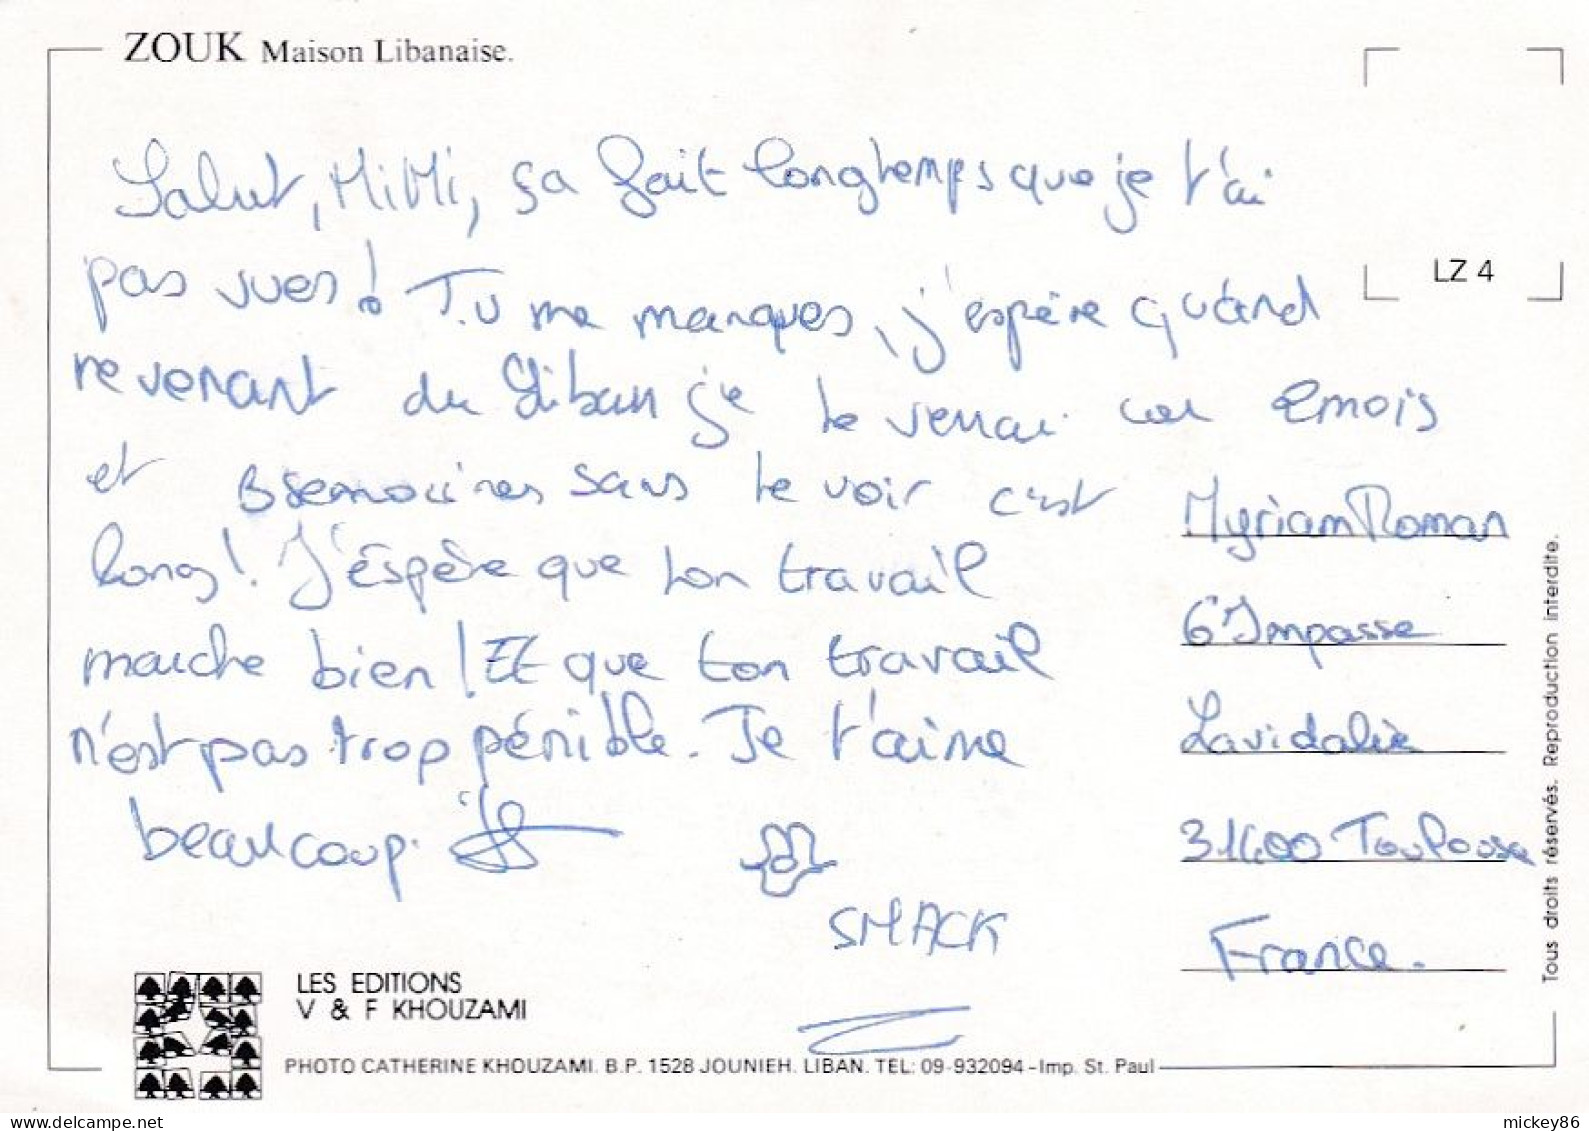 ZOUK Maison Libanaise.
LZ 4
Salut, MiMi, ça fait longtemps que je t'ai
pas vues! Tu me manques, j'espère quánd
revenant du Liban je te verrai car 2mois
et 3semaines sans te voir c'est
long! J'éspère que ton travail
marche bien! Et que ton travail
n'est pas trop pénible. Je t'aime
beaucoup.
SMACK
Myriam Roman
6 Impasse
Lavidalie
31400 Toulouse
France.
Tous droits réservés. Reproduction interdite.
LES EDITIONS
V & F KHOUZAMI
PHOTO CATHERINE KHOUZAMI. B.P. 1528 JOUNIEH. LIBAN. TEL: 09-932094-Imp. St. Paul
mickey86